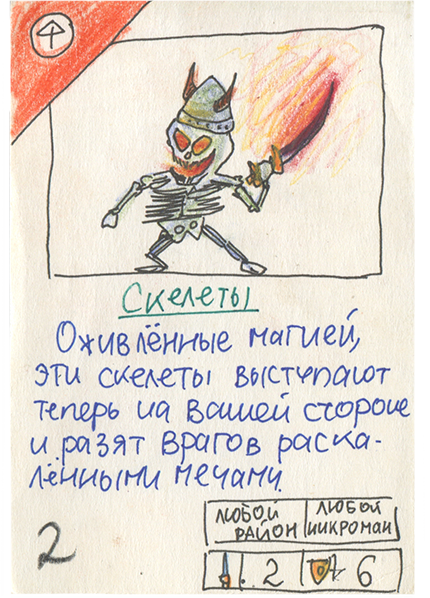 Скелеты
Оживлённые магией,
эти скелеты выступают
теперь на вашей стороне
и разят врагов раска-
лёнными мечами.
2
ЛЮБОЙ РАЙОН
ЛЮБОЙ НИКРОМАН
2
6